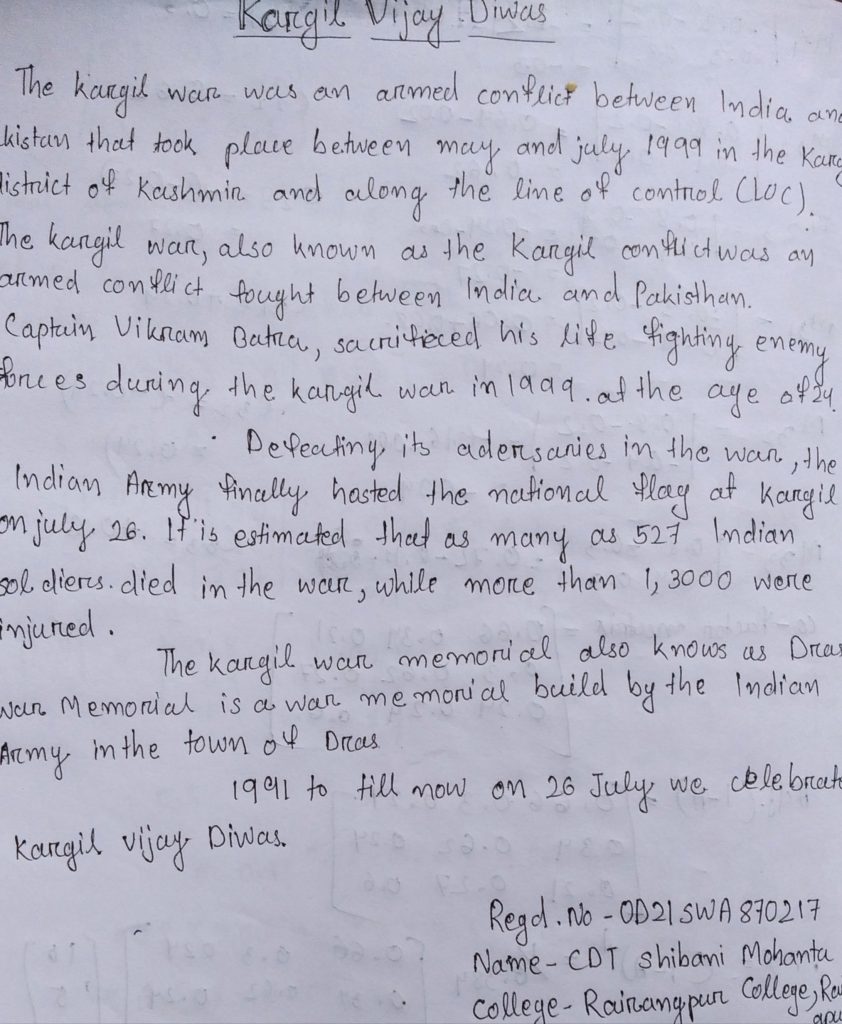 Kargil Vijay Diwas
The kargil war was an armed conflict between India an
kistan that took place between may and july 1999 in the Karg
istrict of Kashmir and along the line of control (LOC).
The kargil war, also known as the Kargil conflict was an
armed conflict fought between India and Pakisthan.
Captain Vikram Batra, sacrificed his life fighting enemy
forces during the kargil war in 1999. at the age of 24.
Defeating its adersaries in the war, the
Indian Army finally hosted the national flag at Kargil
on july 26. It is estimated that as many as 527 Indian
soldiers. died in the war, while more than 1,3000 were
injured.
The kargil war memorial also knows as Dras
War Memorial is a war memorial build by the Indian
Army in the town of Dras
1991 to till now on 26 July we celebrate
Kargil vijay Diwas.
Regd. No - OD21SWA870217
Name - CDT Shibani Mohanta
College - Rairangpur College, Rai